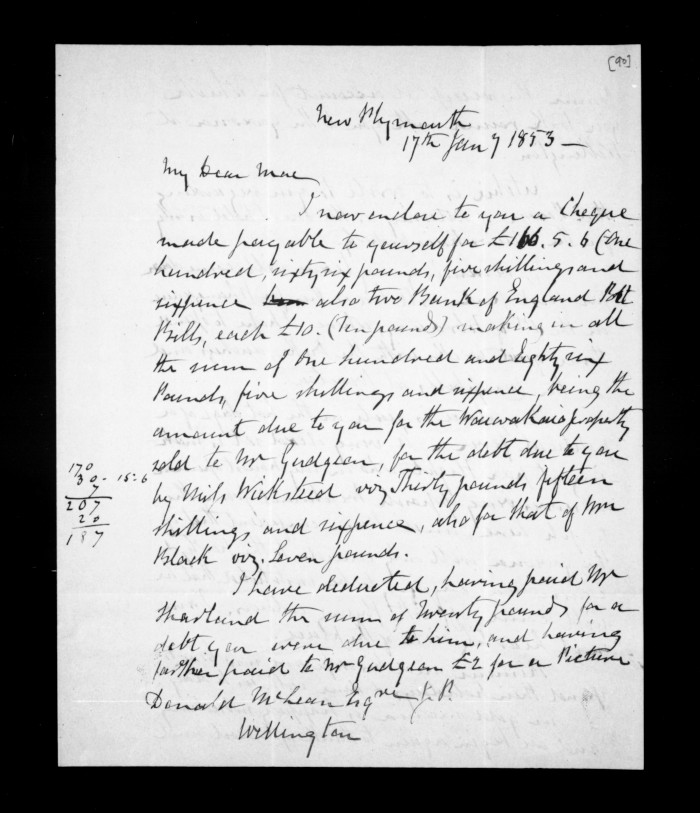 [90]
New Plymouth
17th Jany 1853 —
My Dear Mac
I now enclose to you a Cheque
made payable to yourself for £166. 5. 6 (One
hundred, sixty six pounds, five shillings and
sixpence also two Bank of England Post
Bills, each £10. (Ten pounds) making in all
the sum of One hundred and Eighty six
Pounds, five shillings and sixpence, being the
amount due to you for the Waiwakaio property
sold to Mr Gudgeon, for the debt due to you
by Mils Wicksteed viz, Thirty pounds fifteen
shillings and sixpence, also for that of Wm
Black viz. Seven pounds.
170
30 - 15: 6
7
207
20
187
I have deducted, having paid Mr
the sum of Twenty pounds for a
debt you were due to him, and having
further paid to Mr Gudgeon £2 for a Picture
Donald McLean Esqre J.P.
Wellington